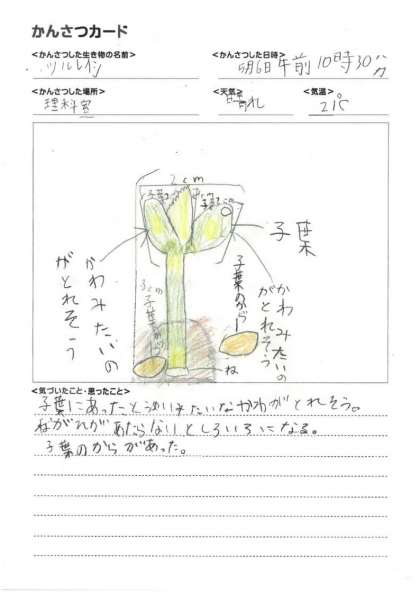 かんさつカード
<かんさつした生き物の名前>
ツルレイシ
<かんさつした日時>
5月6日午前10時30分
<かんさつした場所>
理科室
<天気>
晴れ
<気温>
21℃
2cm
子葉
子葉
子葉
かわみたいの
がとれそう
3cm
子葉のから
子葉のから
かわみたいの
がとれそう
ね
<気づいたこと・思ったこと>
子葉にあったとうめいみたいなかわがとれそう。
ねがれがあたらないとしろいろになる。
子葉のからがあった。